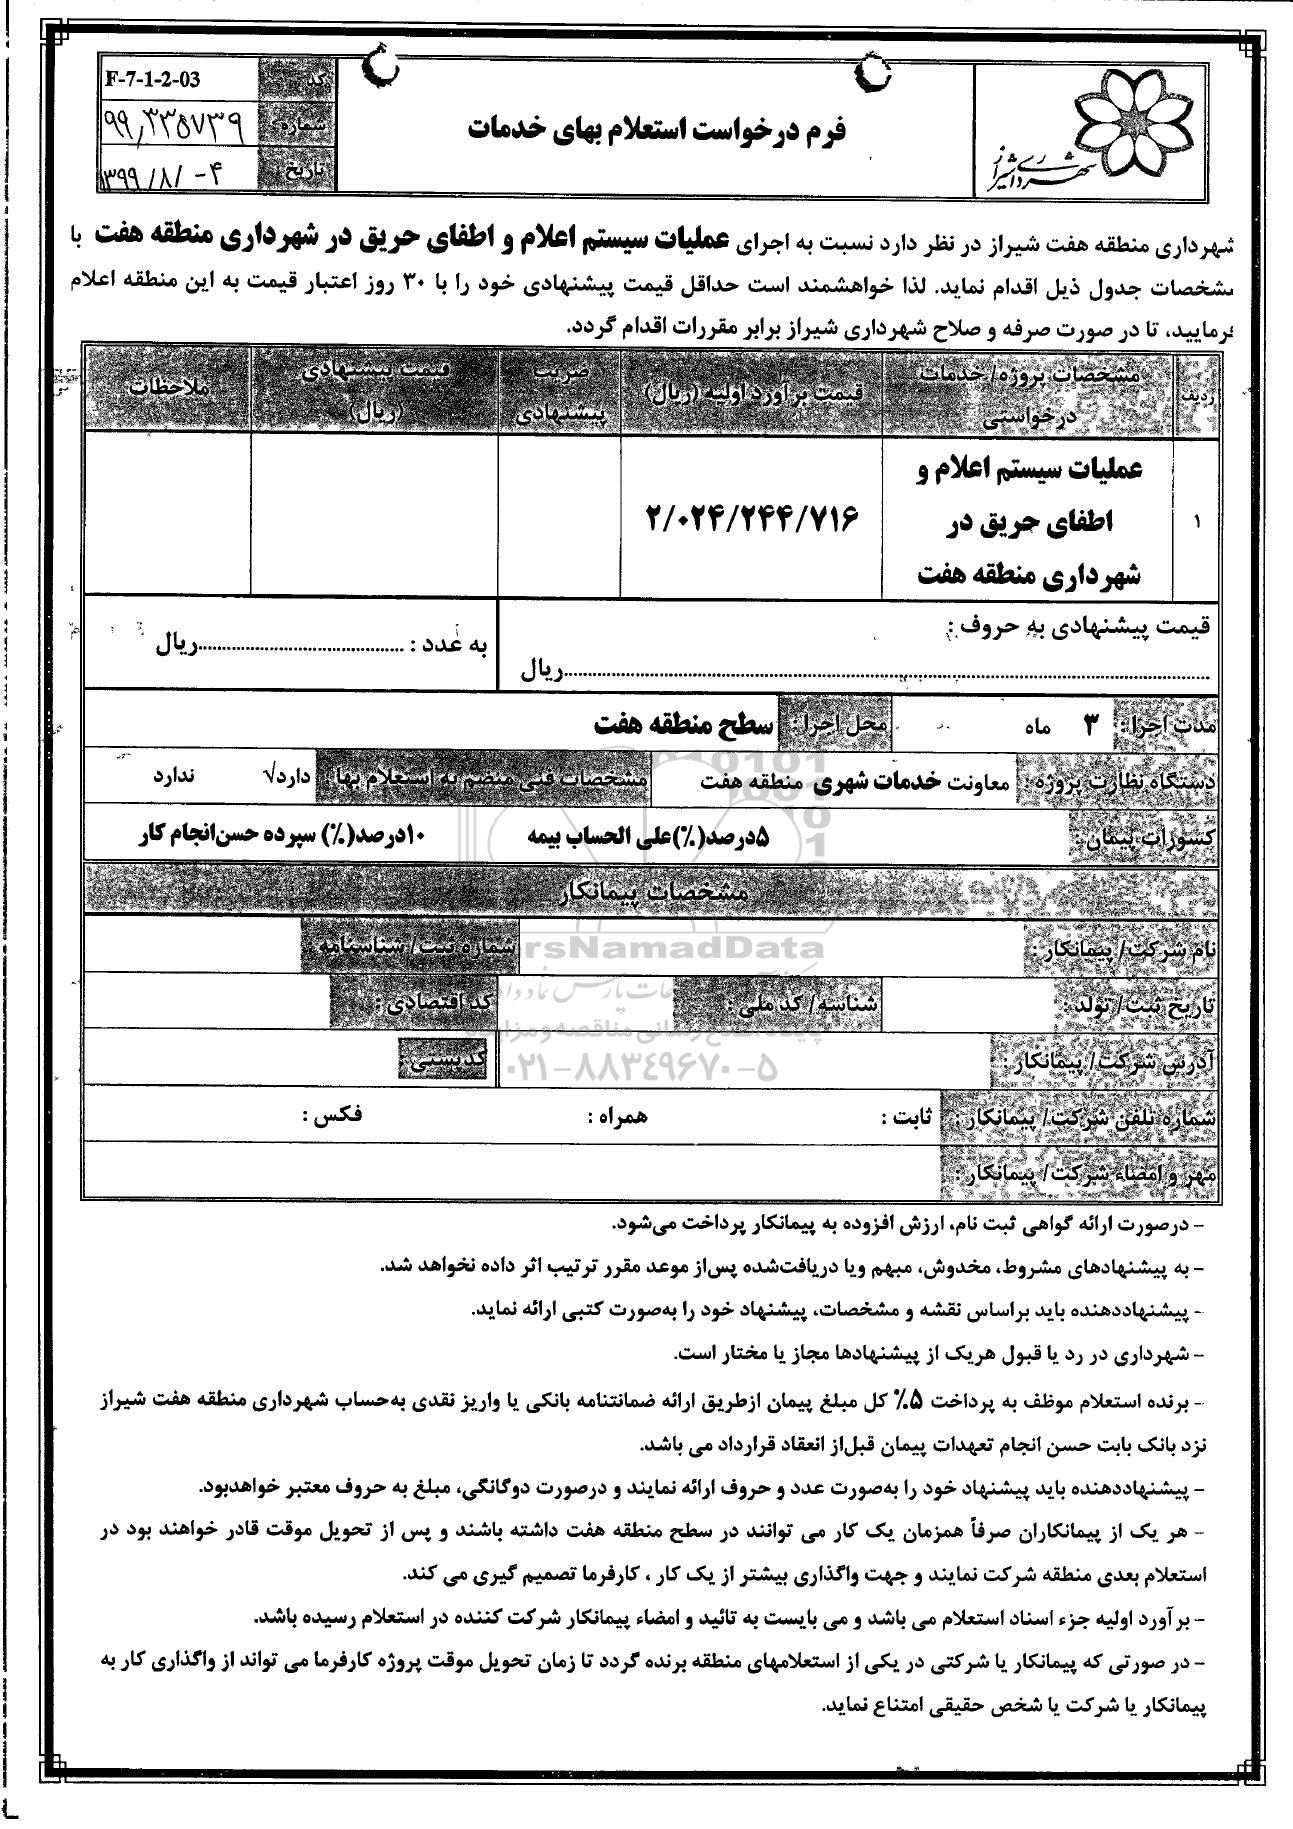 شهرداری شیراز
فرم درخواست استعلام بهای خدمات
کد F-7-1-2-03
شماره: ۹۹٫۳۳۵۷۳۹
تاریخ: ۱۳۹۹/۸/-۴
شهرداری منطقه هفت شیراز در نظر دارد نسبت به اجرای عملیات سیستم اعلام و اطفای حریق در شهرداری منطقه هفت با
مشخصات جدول ذیل اقدام نماید. لذا خواهشمند است حداقل قیمت پیشنهادی خود را با ۳۰ روز اعتبار قیمت به این منطقه اعلام
فرمایید، تا در صورت صرفه و صلاح شهرداری شیراز برابر مقررات اقدام گردد.
ردیف مشخصات پروژه/ خدمات درخواستی قیمت برآورد اولیه (ریال) ضریب پیشنهادی قیمت پیشنهادی (ریال) ملاحظات
۱ عملیات سیستم اعلام و ۲/۰۲۴/۲۴۴/۷۱۶
اطفای حریق در
شهرداری منطقه هفت
قیمت پیشنهادی به حروف :
............ریال به عدد : ............ریال
مدت اجرا : ۳ ماه محل اجرا : سطح منطقه هفت
دستگاه نظارت پروژه : معاونت خدمات شهری منطقه هفت مشخصات فنی منضم به استعلام بها: دارد√ ندارد
کسورات پیمان : ۵درصد(%)علی الحساب بیمه ۱۰درصد(%) سپرده حسن‌انجام کار
مشخصات پیمانکار
نام شرکت/ پیمانکار : شماره ثبت/ شناسنامه :
rsNamadData
تاریخ ثبت/ تولد : شناسه/ کد ملی : کد اقتصادی :
آدرس شرکت/ پیمانکار : کدپستی :
۰۲۱-۸۸۳۴۹۶۷۰-۵
شماره تلفن شرکت/ پیمانکار : ثابت : همراه : فکس :
مهر و امضاء شرکت/ پیمانکار :
- درصورت ارائه گواهی ثبت نام، ارزش افزوده به پیمانکار پرداخت می‌شود.
- به پیشنهادهای مشروط، مخدوش، مبهم ویا دریافت‌شده پس‌از موعد مقرر ترتیب اثر داده نخواهد شد.
- پیشنهاددهنده باید براساس نقشه و مشخصات، پیشنهاد خود را به‌صورت کتبی ارائه نماید.
- شهرداری در رد یا قبول هریک از پیشنهادها مجاز یا مختار است.
- برنده استعلام موظف به پرداخت ۵% کل مبلغ پیمان ازطریق ارائه ضمانتنامه بانکی یا واریز نقدی به‌حساب شهرداری منطقه هفت شیراز
نزد بانک بابت حسن انجام تعهدات پیمان قبل‌از انعقاد قرارداد می باشد.
- پیشنهاددهنده باید پیشنهاد خود را به‌صورت عدد و حروف ارائه نمایند و درصورت دوگانگی، مبلغ به حروف معتبر خواهدبود.
- هر یک از پیمانکاران صرفاً همزمان یک کار می توانند در سطح منطقه هفت داشته باشند و پس از تحویل موقت قادر خواهند بود در
استعلام بعدی منطقه شرکت نمایند و جهت واگذاری بیشتر از یک کار ، کارفرما تصمیم گیری می کند.
- برآورد اولیه جزء اسناد استعلام می باشد و می بایست به تائید و امضاء پیمانکار شرکت کننده در استعلام رسیده باشد.
- در صورتی که پیمانکار یا شرکتی در یکی از استعلامهای منطقه برنده گردد تا زمان تحویل موقت پروژه کارفرما می تواند از واگذاری کار به
پیمانکار یا شرکت یا شخص حقیقی امتناع نماید.